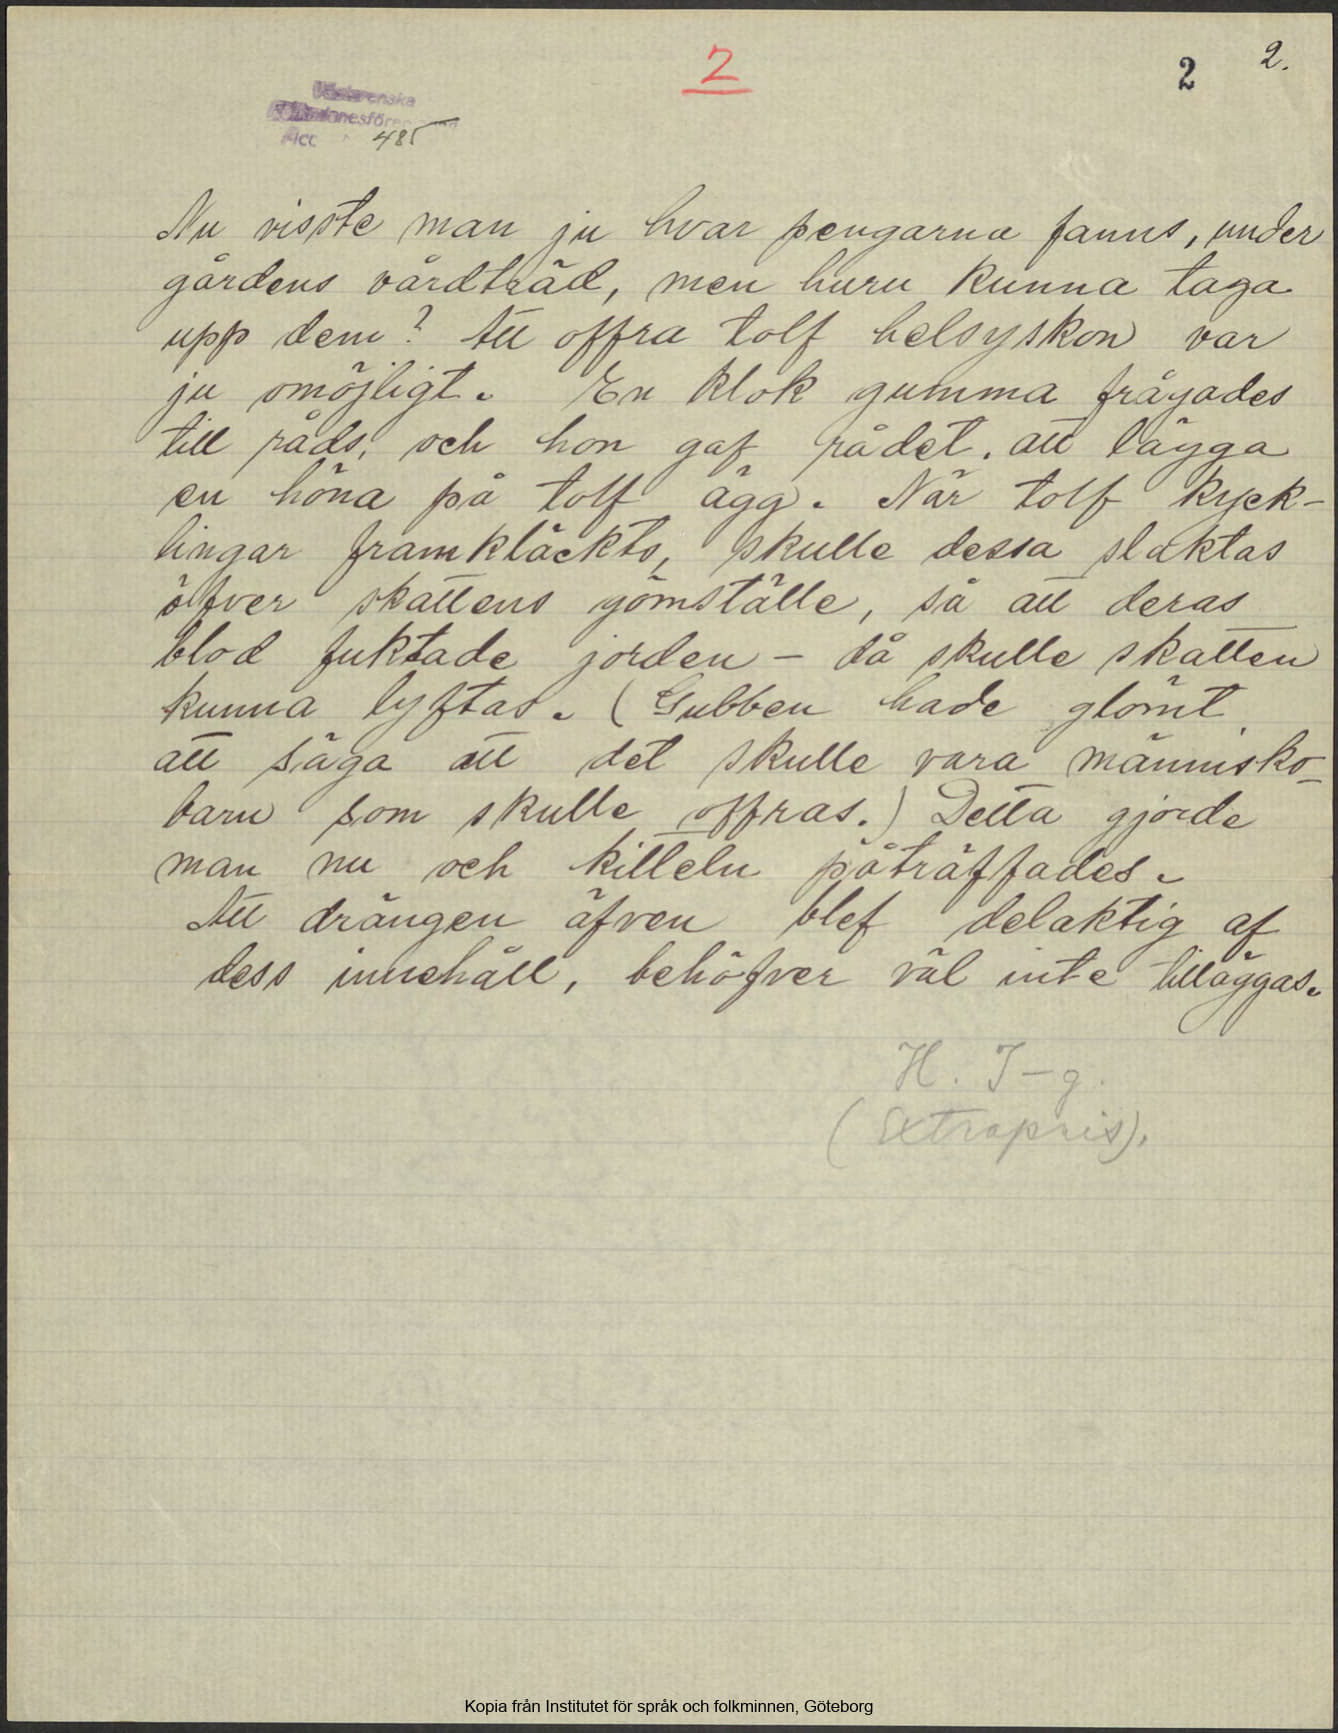 2
2
2.
Västsvenska
Folkminnesföreningen
Acc 485
Nu visste man ju hvar pengarna fanns, under
gårdens vårdträd, men huru kunna taga
upp dem? Att offra tolf helsyskon var
ju omöjligt. En klok gumma frågades
till råds, och hon gaf rådet, att lägga
en höna på tolf ägg. När tolf kyck-
lingar framkläckts, skulle dessa slaktas
öfver skattens gömställe, så att deras
blod fuktade jorden – då skulle skatten
kunna lyftas. (Gubben hade glömt
att säga att det skulle vara människo-
barn som skulle offras.) Detta gjorde
man nu och kitteln påträffades.
Att drängen äfven blef delaktig af
dess innehåll, behöfver väl inte tilläggas.
H. J–g.
(Extrapris).
Kopia från Institutet för språk och folkminnen, Göteborg